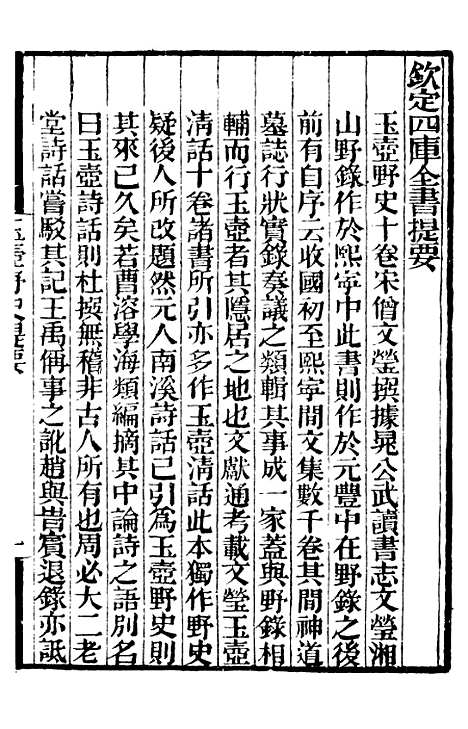 欽定四庫全書提要
玉壺野史十卷宋僧文瑩撰據晁公武讀書志文瑩湘
山野錄作於熙寧中此書則作於元豐中在野錄之後
前有自序云收國初至熙寧間文集數千卷其間神道
墓誌行狀實錄奏議之類輯其事成一家蓋與野錄相
輔而行玉壺者其隱居之地也文獻通考載文瑩玉壺
淸話十卷諸書所引亦多作玉壺淸話此本獨作野史
疑後人所改題然元人南溪詩話已引爲玉壺野史則
其來已久矣若曹溶學海類編摘其中論詩之語別名
曰玉壺詩話則杜撰無稽非古人所有也周必大二老
堂詩話嘗駁其記王禹偁事之訛趙與旹賓退錄亦詆
玉壺野史提要
一